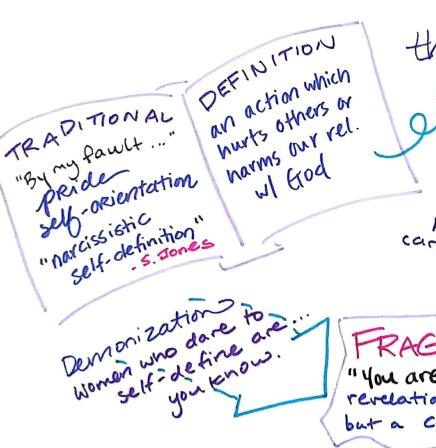 TRADITIONAL
"By my fault ..."
pride
self-orientation
"narcissistic
self-definition"
- S. Jones
DEFINITION
an action which
hurts others or
harms our rel.
w/ God
th
Demonization
women who dare to
self-define are...
you know.
car
FRAG
"You are
revelatio
but a c